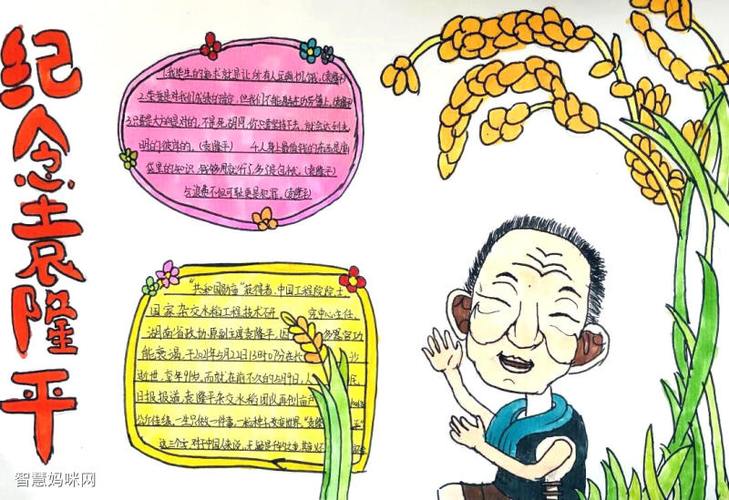 纪念袁隆平
1.我毕生的追求就是让所有人远离饥饿。(袁隆平)
2.荣誉是对我们成绩的肯定,但我们不能躺在功劳簿上。(袁隆平)
3.只要大方向是对的,不是死胡同,你只要坚持下去,就会达到光
明的彼岸的。(袁隆平) 4.人身上最值钱的东西是脑
袋里的知识,钱够用就行了,多很包袱。(袁隆平)
5.浪费不但可耻更是犯罪。(袁隆平)
“共和国勋章”获得者、中国工程院院士、
国家杂交水稻工程技术研 究中心主任、
湖南省政协原副主席袁隆平,因 多器官功
能衰竭,于2021年5月22日13时07分在长 沙
逝世,享年91岁。而就在前不久的5月9日,
日报报道,袁隆平杂交水稻团队再创亩产
公斤佳绩。一生只做一件事,一粒种子改变世界。“袁隆
这三个字,对于中国人来说,
智慧妈咪网